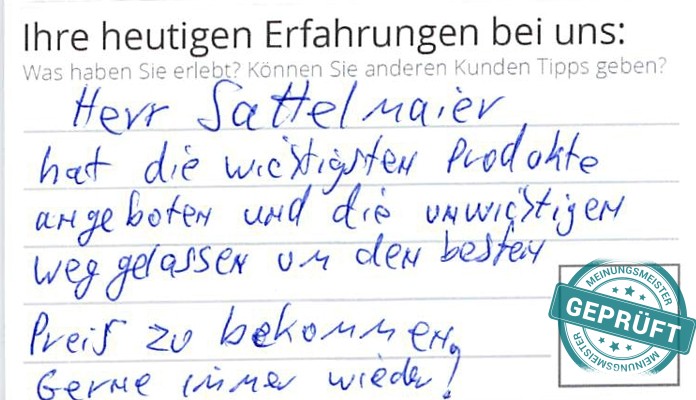 Ihre heutigen Erfahrungen bei uns:
Was haben Sie erlebt? Können Sie anderen Kunden Tipps geben?
Herr Sattelmaier
hat die wichtigsten Produkte
angeboten und die unwichtigen
weggelassen um den besten
Preis zu bekommen.
Gerne immer wieder!
MEINUNGSMEISTER
GEPRÜFT
MEINUNGSMEISTER